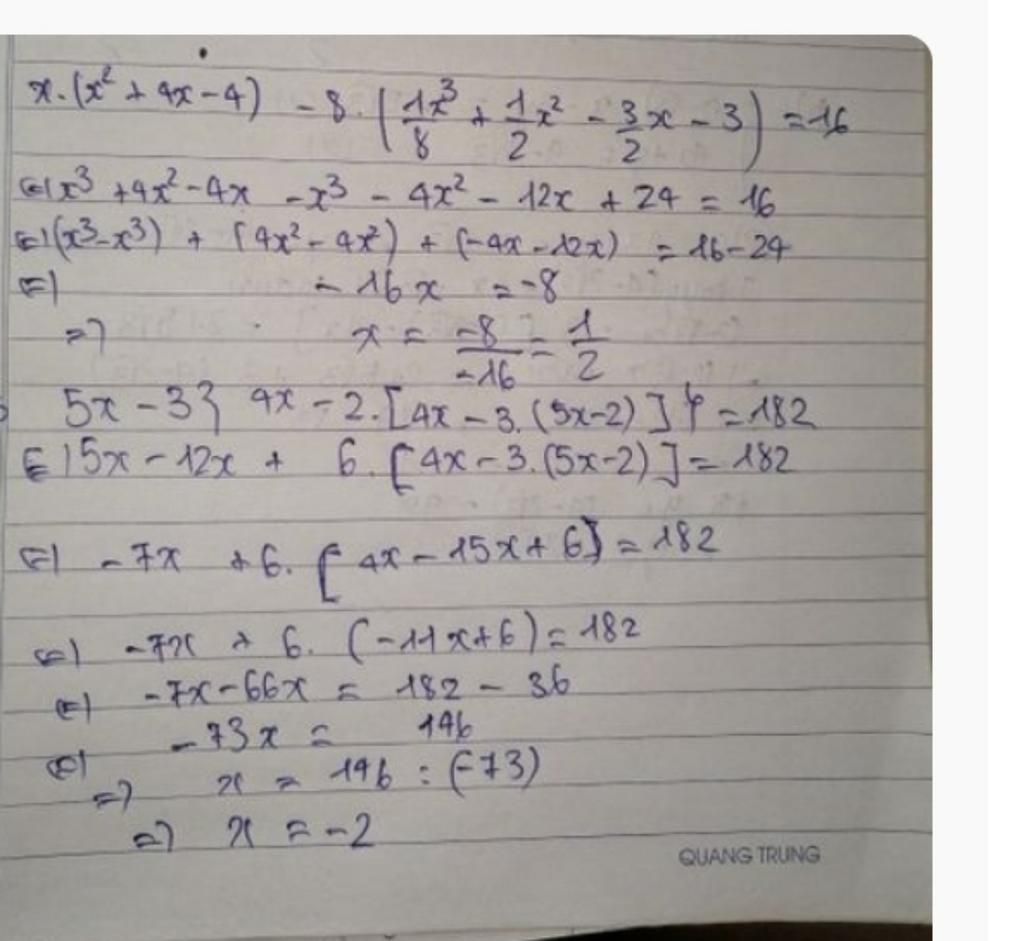 x.(x² + 4x - 4) - 8.(1x³/8 + 1/2 x² - 3/2 x - 3) = 16
<=> x³ + 4x² - 4x - x³ - 4x² - 12x + 24 = 16
<=> (x³ - x³) + (4x² - 4x²) + (-4x - 12x) = 16 - 24
<=> - 16x = -8
=> x = -8/-16 = 1/2
5x - 3{ 4x - 2.[4x - 3.(5x-2)] } = 182
<=> 5x - 12x + 6.[4x - 3.(5x-2)] = 182
<=> -7x + 6.[4x - 15x + 6] = 182
<=> -7x + 6.(-11x + 6) = 182
<=> -7x - 66x = 182 - 36
<=> -73x = 146
=> x = 146 : (-73)
=> x = -2
QUANG TRUNG